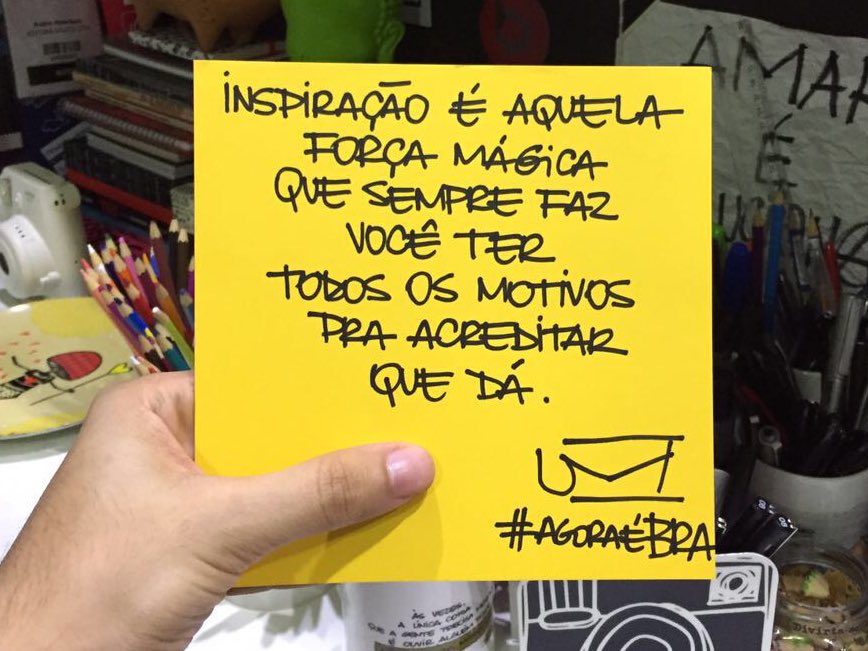 INSPIRAÇÃO É AQUELA
FORÇA MÁGICA
QUE SEMPRE FAZ
VOCÊ TER
TODOS OS MOTIVOS
PRA ACREDITAR
QUE DÁ.
#AGORAÉBRA
AMAR
É
ÀS VEZES,
A ÚNICA COISA
QUE A GENTE PRECISA
É OUVIR ALGUÉM